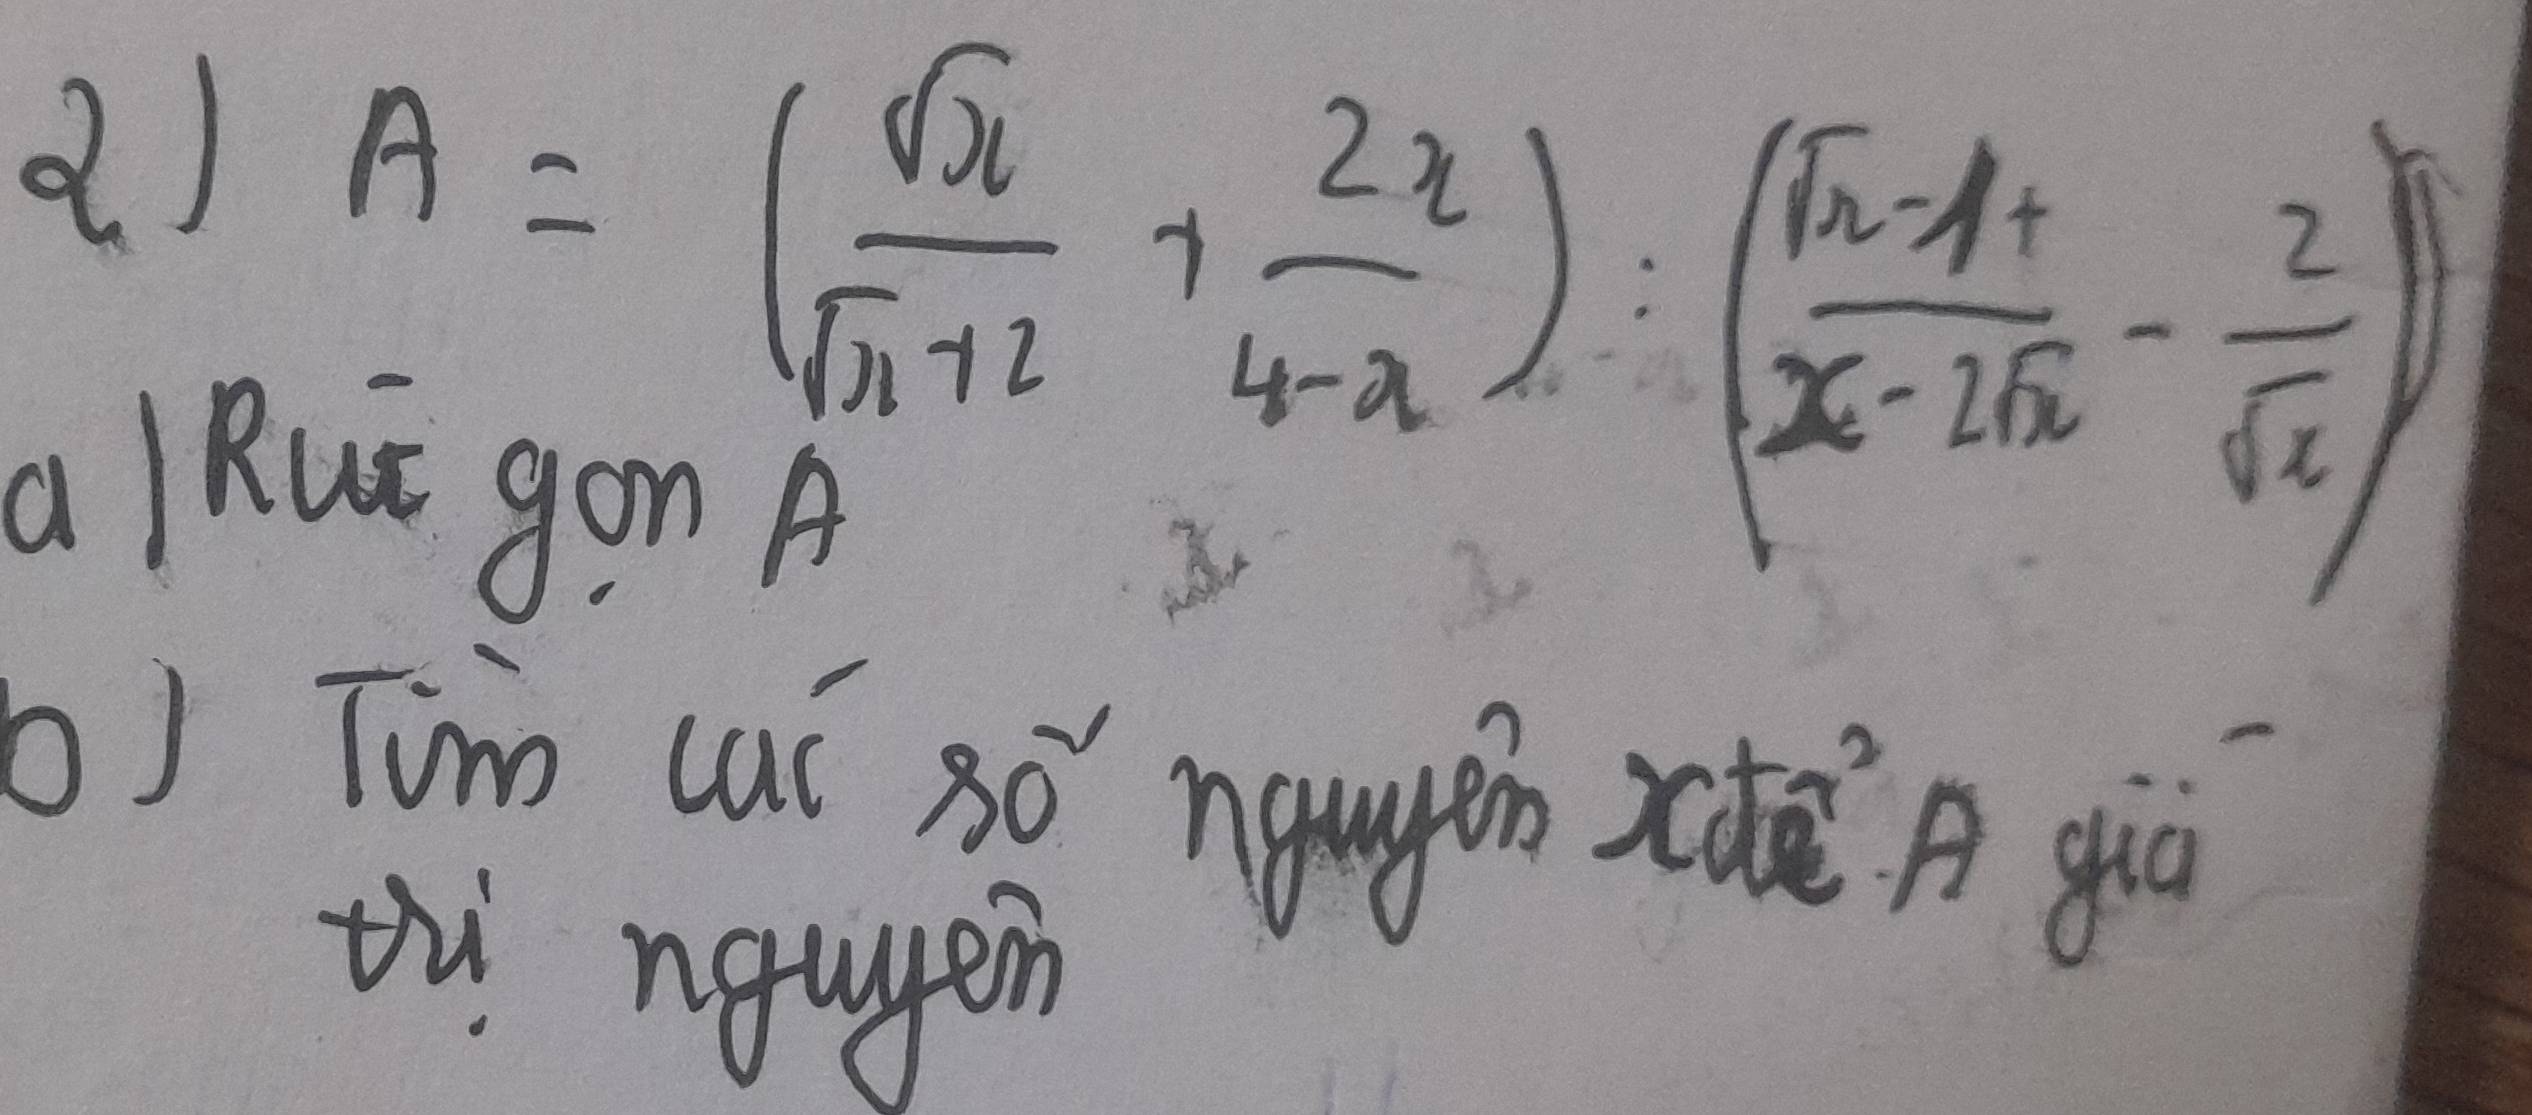 2) A = (√x/(√x+2) + 2x/(4-x)) : ((√x-1+)/(x-2√x) - 2/√x)
a) Rút gọn A
b) Tìm các số nguyên x để A giá
trị nguyên